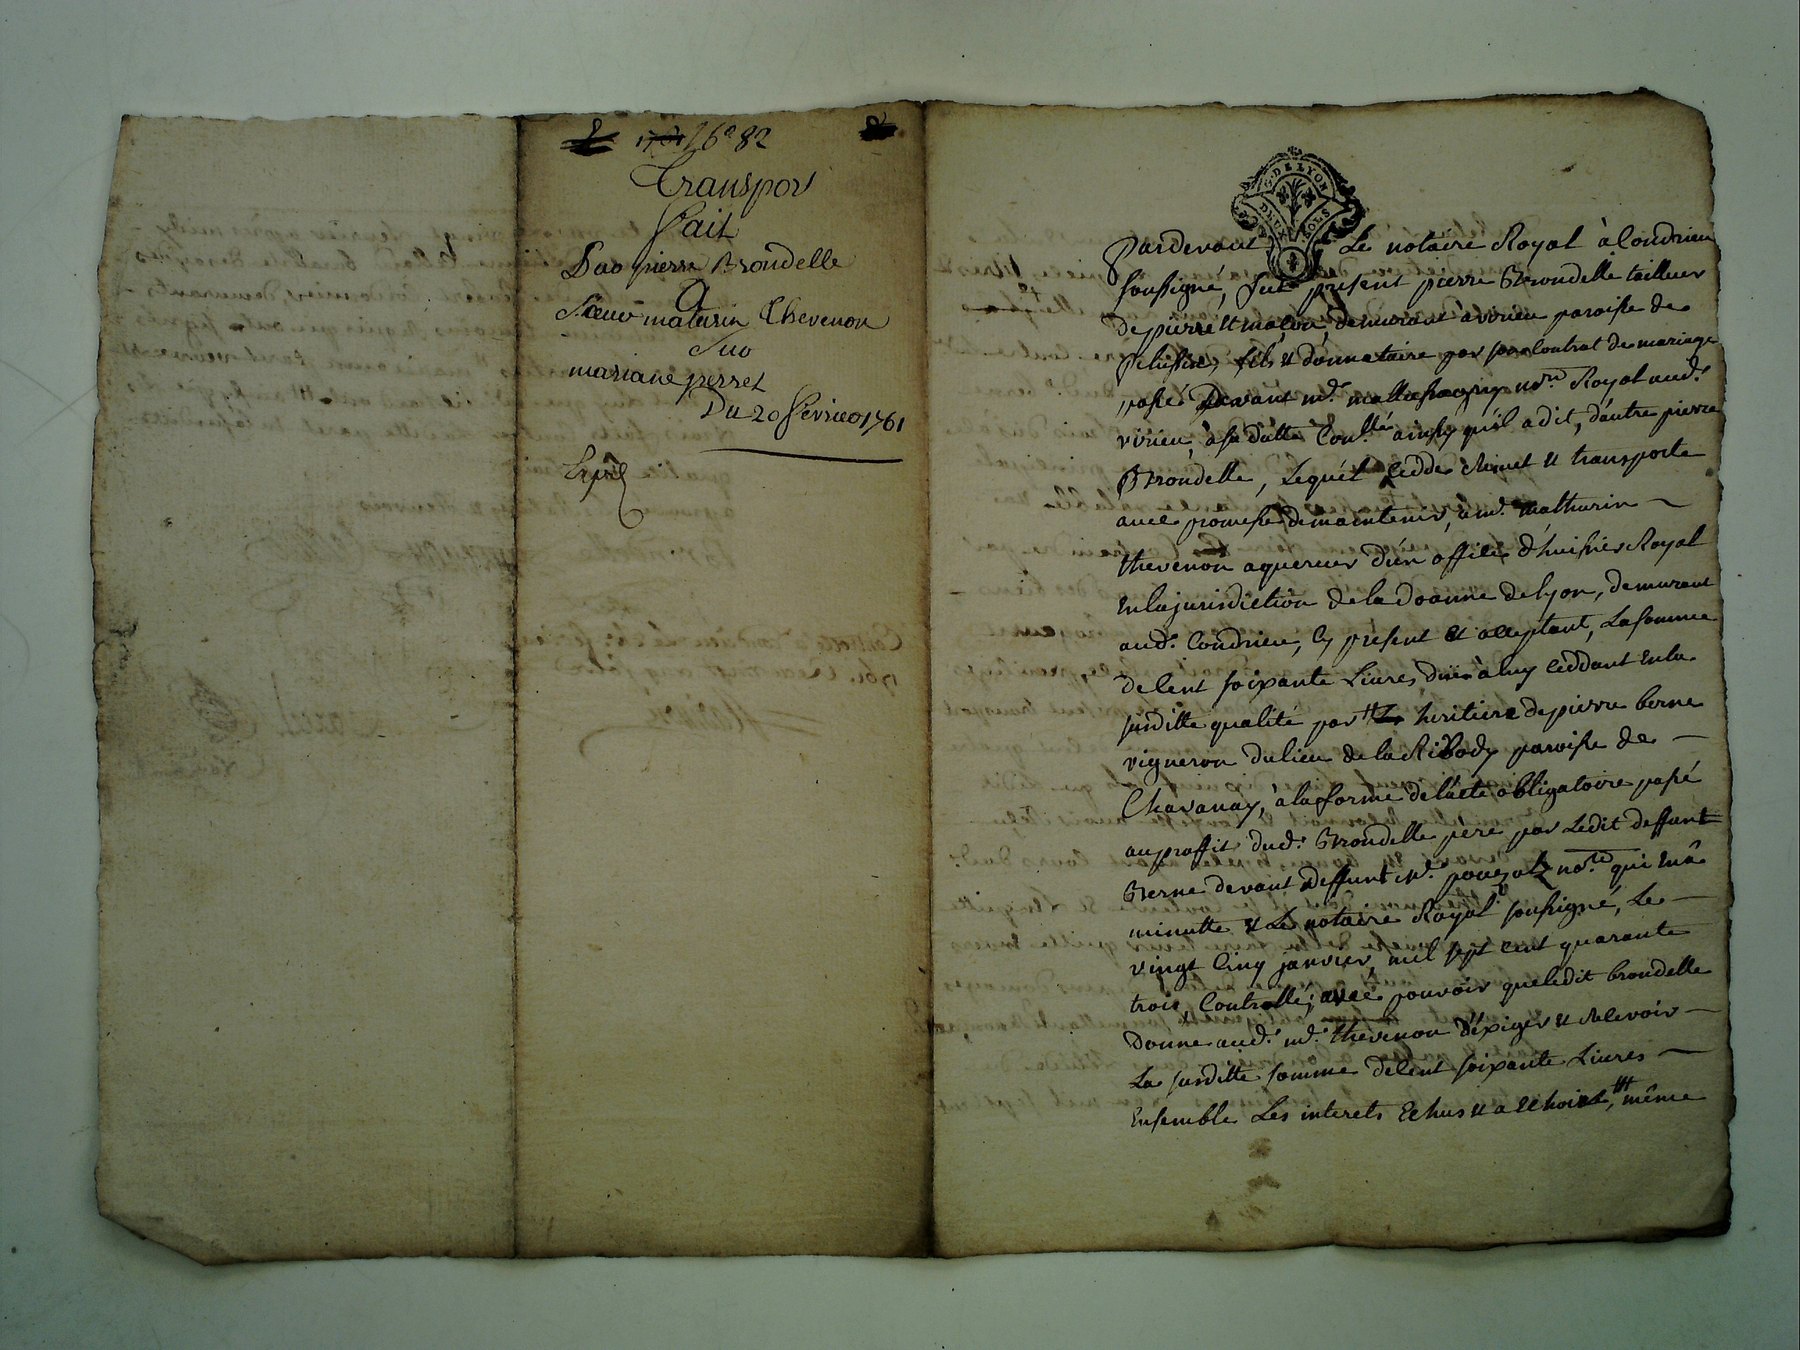 16e 82
Transpor
fait
Par pierre Brondelle
A
Sieur maturin Thevenon
Sur
mariane perret
Du 20 fevrier 1761
G. DE LYON
DEUX SOLS
Pardevant Le notaire Royal à Condrieu
soussigné, fut present pierre Brondelle tailleur
de pierre et maçon, demurant a virieu paroisse de
pelussin, fils et donnataire par son Contrat de mariage
passé Devant md. nore. Royal aud.
virieu, à sa datte Conllé ainsy qu'il a dit, d'autre pierre
Brondelle, Lequel cedde remet et transporte
avec promesse de maintenir, a md. Mathurin
thevenon aquereur d'un office d'huissier Royal
En la jurisdiction de la doanne de lyon, demurant
aud. Condrieu, Cy present et acceptant, La somme
de Cent soixante Livres, düe à luy ceddant En la
susditte qualité par heritiere de pierre berne
vigneron du lieu de la Ribody paroisse de
Chavanay, à la forme de l'acte obligatoire passé
au proffit dud. Brondelle pere par Ledit deffunt
Berne devant deffunt me. nore. qui En a
minutte et Le notaire Royal soussigné, Le
vingt Cinq janvier, mil sept cent quarante
trois, Controllé; avec pouvoir que ledit brondelle
Donne aud. md. thevenon d'exiger et recevoir
La susditte somme de Cent soixante Livres
Ensemble Les interets Echus et a Echoir, même